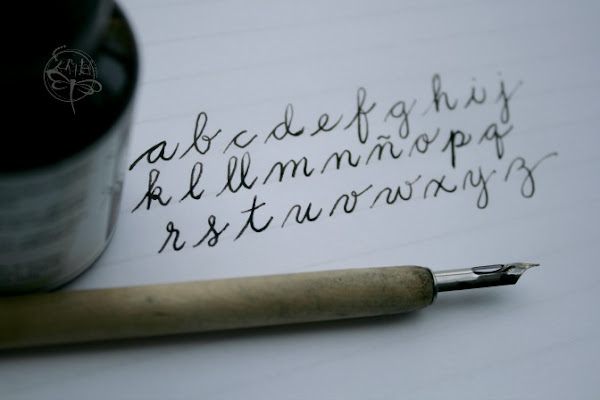 a b c d e f g h i j
k l ll m n ñ o p q
r s t u v w x y z